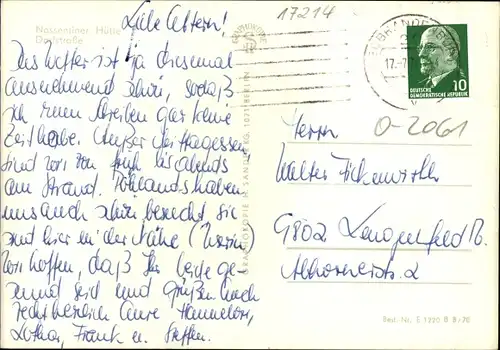 Nossentiner Hütte
Dorfstraße
Liebe Eltern!
Das Wetter ist ja diesmal
ausnehmend schön, sodaß
ich zum Schreiben gar keine
Zeit habe. Außer Mittagessen
sind wir von früh bis abends
am Strand. Pohlands haben
uns auch schon besucht, sie
sind hier in der Nähe (Waren)
Wir hoffen, daß Ihr beide ge-
sund seid und grüßen Euch
recht herzlich Eure Hannelore,
Lothar, Frank u. Steffen.
17214
BRANDENBURG
17.-7
10
DEUTSCHE
DEMOKRATISCHE REPUBLIK
0-2061
Herrn
Walter Fickenwirth
9802 Lengenfeld V.
Abhornerstr. 2
Best.-Nr. E 1320 B 8/70